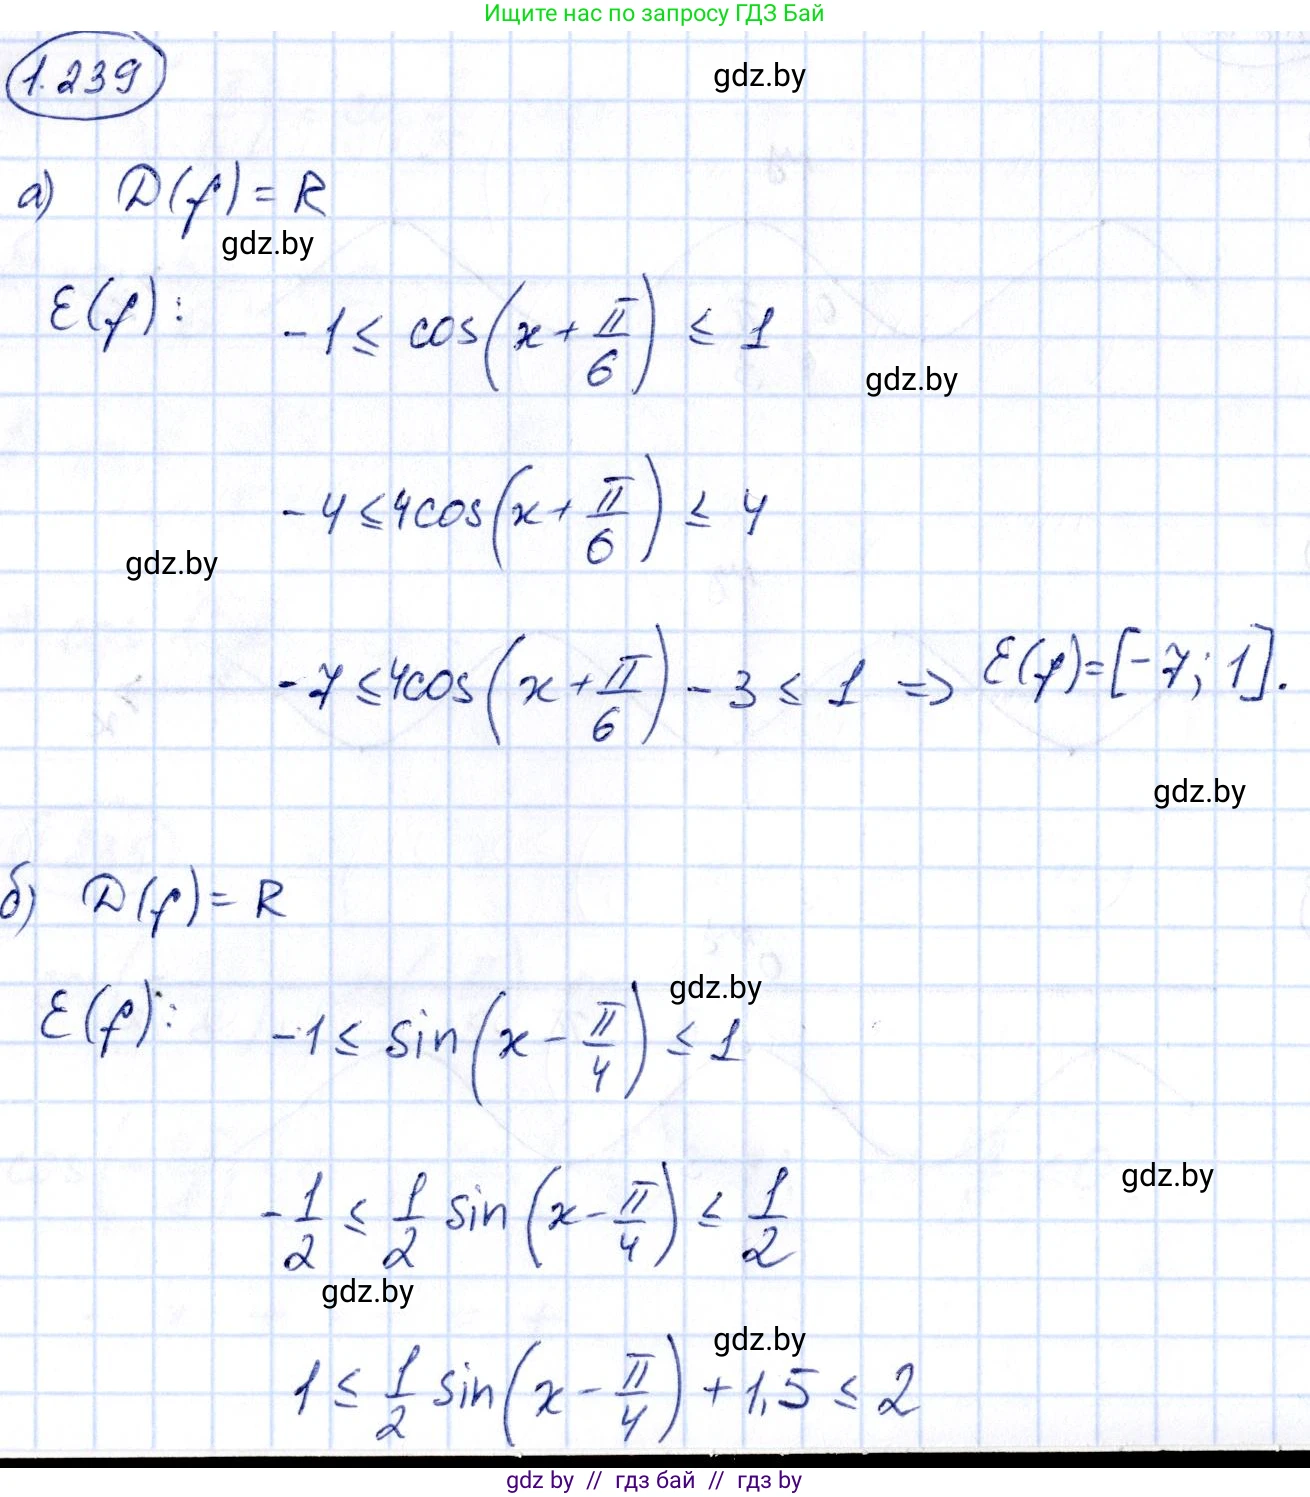 Ищите нас по запросу ГДЗ Бай
1.239
gdz.by
а) D(f) = R
gdz.by
E(f): -1 ≤ cos(x + π/6) ≤ 1
gdz.by
-4 ≤ 4cos(x + π/6) ≤ 4
gdz.by
-7 ≤ 4cos(x + π/6) - 3 ≤ 1 => E(f) = [-7; 1].
gdz.by
б) D(f) = R
gdz.by
E(f): -1 ≤ sin(x - π/4) ≤ 1
gdz.by
-1/2 ≤ 1/2 sin(x - π/4) ≤ 1/2
gdz.by
gdz.by
1 ≤ 1/2 sin(x - π/4) + 1,5 ≤ 2
gdz by // гдз бай // гдз by